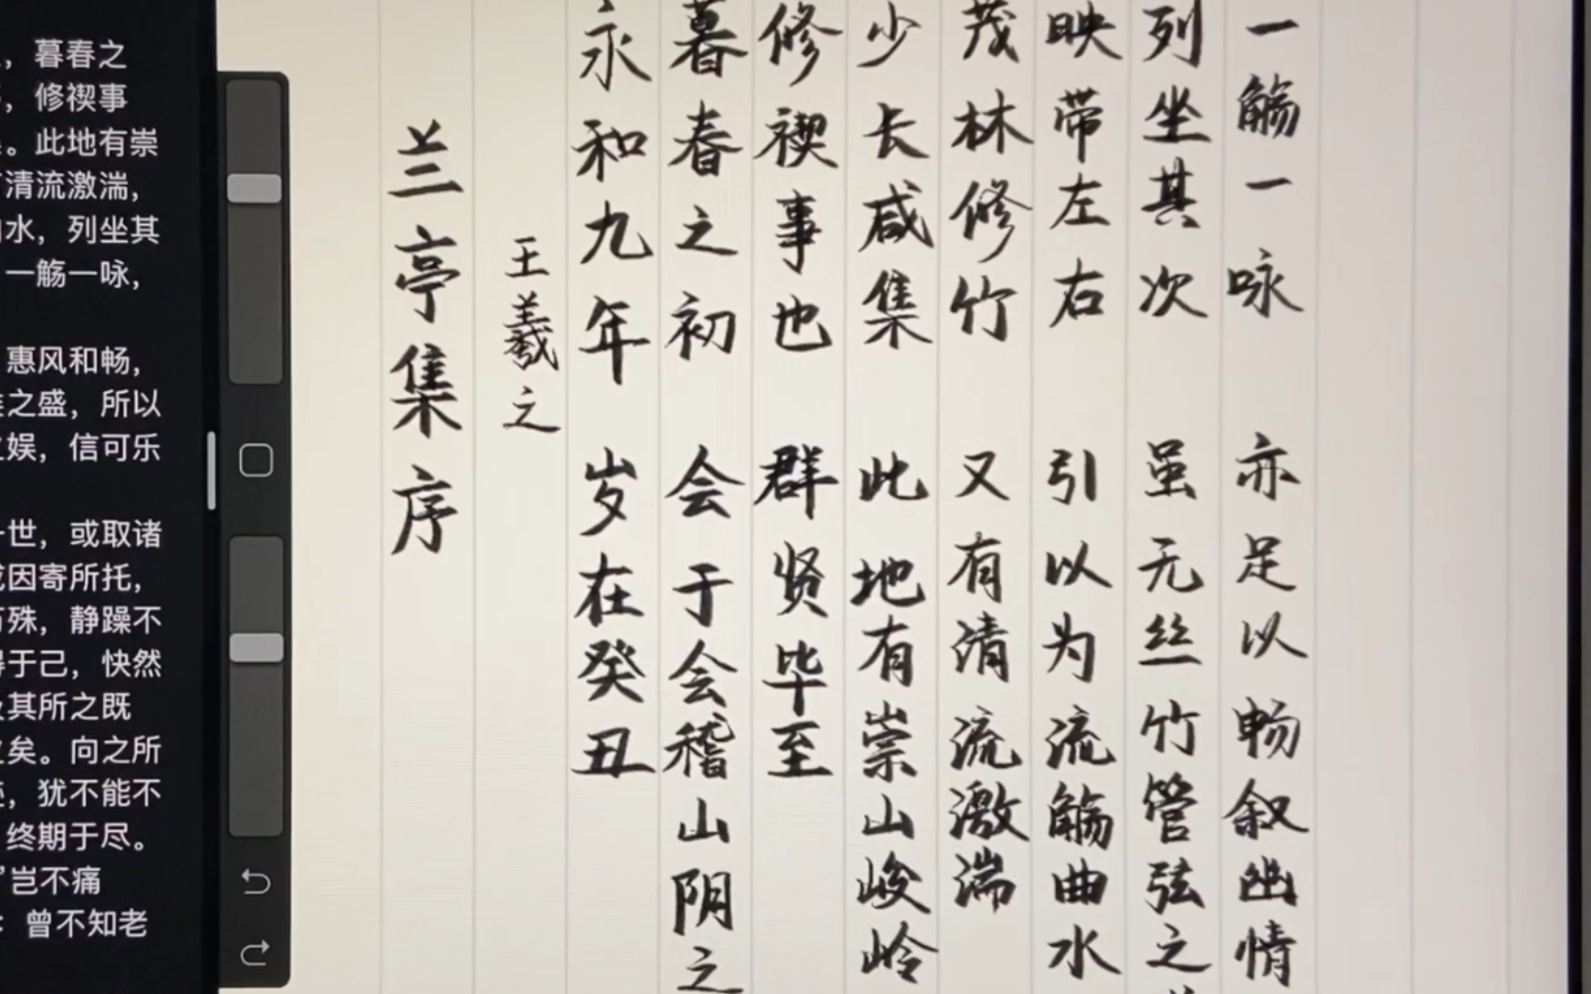 ，暮春之
，修禊事
。此地有崇
清流激湍，
水，列坐其
一觞一咏，
惠风和畅，
之盛，所以
娱，信可乐
世，或取诸
因寄所托，
殊，静躁不
于己，快然
其所之既
矣。向之所
，犹不能不
终期于尽。
岂不痛
曾不知老
兰亭集序
王羲之
永和九年 岁在癸丑
暮春之初 会于会稽山阴之
修禊事也 群贤毕至
少长咸集 此地有崇山峻岭
茂林修竹 又有清流激湍
映带左右 引以为流觞曲水
列坐其次 虽无丝竹管弦之
一觞一咏 亦足以畅叙幽情